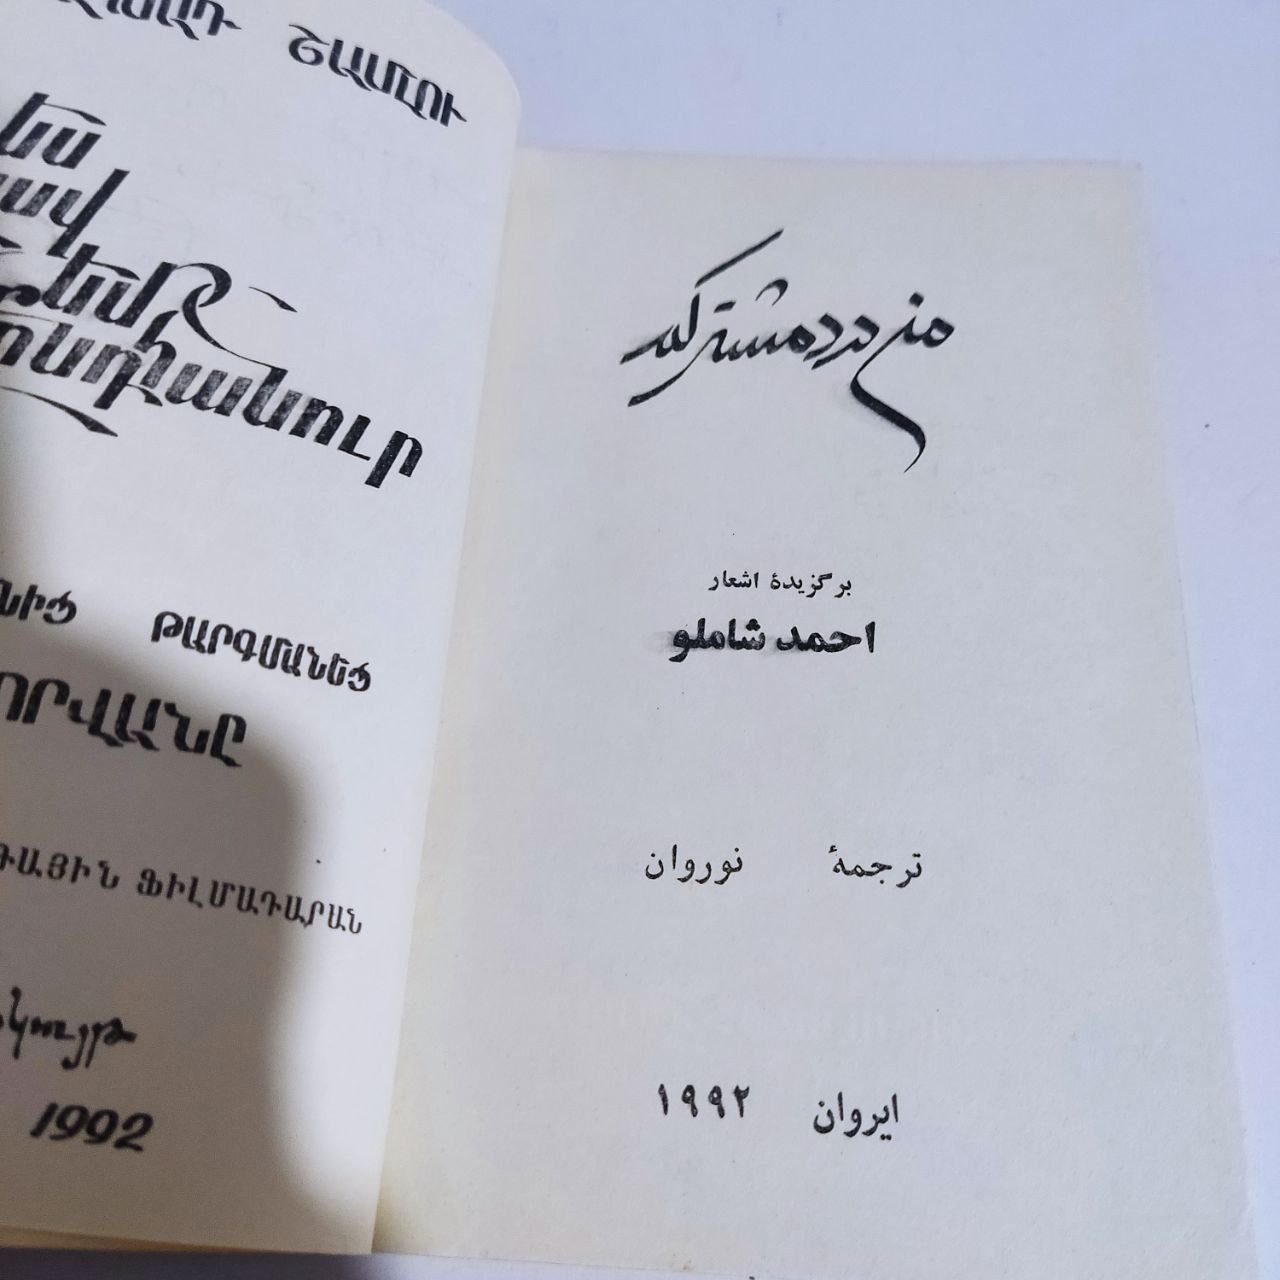 ՇԱՄԼՈՒ
ես
ցավ
եմ
ընդհանուր
ԹԱՐԳՄԱՆԵՑ
ՆՈՐՎԱՆԸ
ՖԻԼՄԱԴԱՐԱՆ
1992
من درد مشترکم
برگزیدهٔ اشعار
احمد شاملو
ترجمهٔ نوروان
ایروان ۱۹۹۲